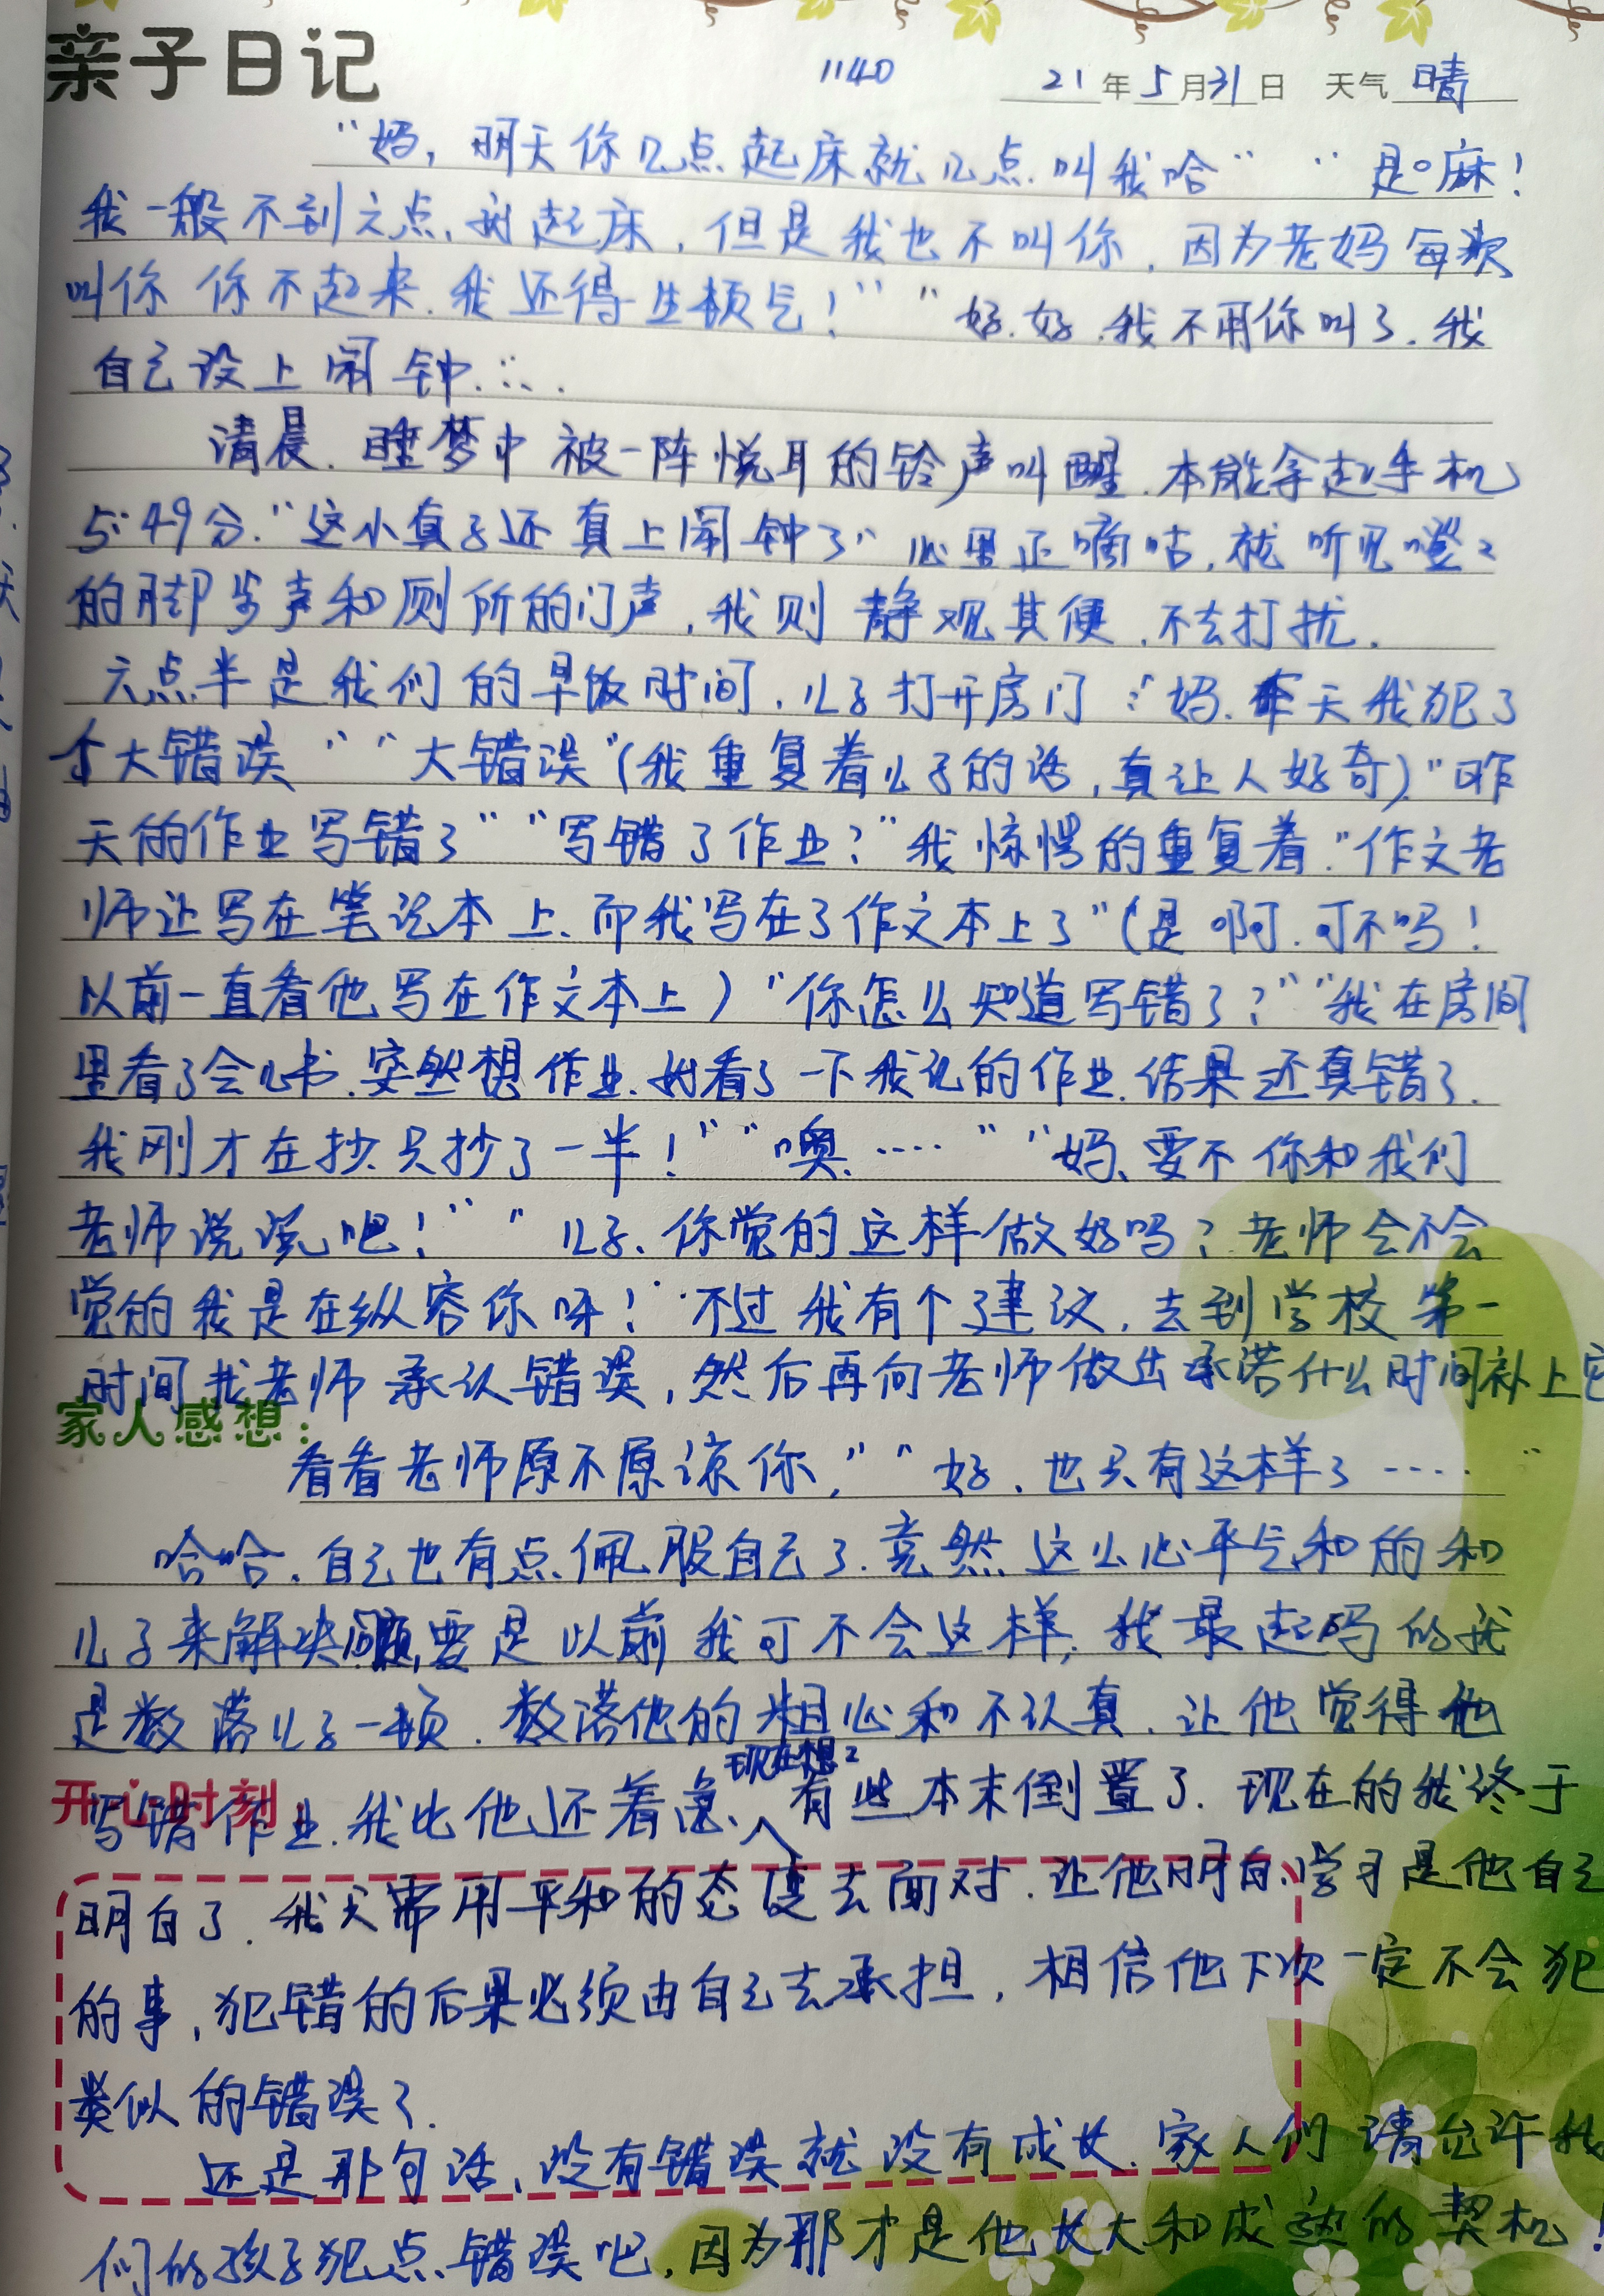 亲子日记
1140 21年5月31日 天气晴
“妈，明天你几点起床就几点叫我哈” “是嘛！
我一般不到六点就起床，但是我也不叫你，因为老妈每次
叫你 你不起来.我还得生顿气！” “好.好.我不用你叫了.我
自己设上闹钟.....
清晨.睡梦中被一阵悦耳的铃声叫醒.本能拿起手机
5:49分.“这小真子还真上闹钟了”心里正嘀咕，就听见噔々
的脚步声和厕所的门声，我则静观其便.不去打扰.
六点半是我们的早饭时间，儿子打开房门：“妈.昨天我犯了
个大错误”“大错误”(我重复着儿子的话，真让人好奇)“昨
天的作业写错了”“写错了作业？”我惊愕的重复着.“作文老
师让写在笔记本上、而我写在了作文本上了”(是啊.可不吗！
以前一直看他写在作文本上)“你怎么知道写错了？”“我在房间
里看了会儿书.突然想作业.就看了一下我记的作业.结果还真错了.
我刚才在抄.只抄了一半！”“噢.....”“妈、要不你和我们
老师说说吧！”“儿子、你觉的这样做好吗？老师会不会
觉的我是在纵容你呀！”不过我有个建议，去到学校第一
时间找老师承认错误，然后再向老师做出承诺什么时间补上它
家人感想：
看看老师原不原谅你，”“好.也只有这样了.....”
哈哈.自己也有点佩服自己了.竟然这么心平气和的和
儿子来解决问题，要是以前我可不会这样，我最起吗的我
是数落儿子一顿.数落他的粗心和不认真.让他觉得他
现在想々
开心时刻
写错作业.我比他还着急、有些本末倒置了.现在的我终于
明白了.我只需用平和的态度去面对.让他明白、学习是他自己
的事，犯错的后果必须由自己去承担，相信他下次一定不会犯
类似的错误了.
还是那句话、没有错误就没有成长.家人们请允许我
们的孩子犯点错误吧，因为那才是他长大和成熟的契机！